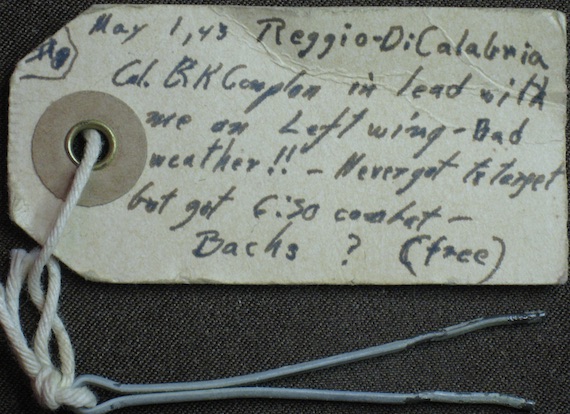 May 1, 43 Reggio-DiCalabria
Col. KK Compton in lead with
me on Left wing - Bad
weather!! - Never got to target
but got 6:30 combat -
Bachs ? (free)